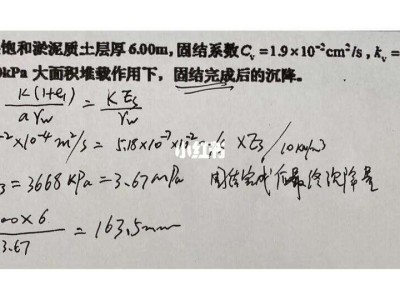 饱和淤泥质土层厚6.00m,固结系数Cv=1.9×10⁻²cm²/s,kv=
0kPa 大面积堆载作用下,固结完成后的沉降。
K(1+e₁)/aγw = KEs/γw
⁻²×10⁻⁴m²/s = 5.18×10⁻⁷×10⁻² ×Es/10kN/m³
小红书
s=3668KPa=3.67mPa 固结完成后最终沉降量
00×6/3.67 = 163.5mm